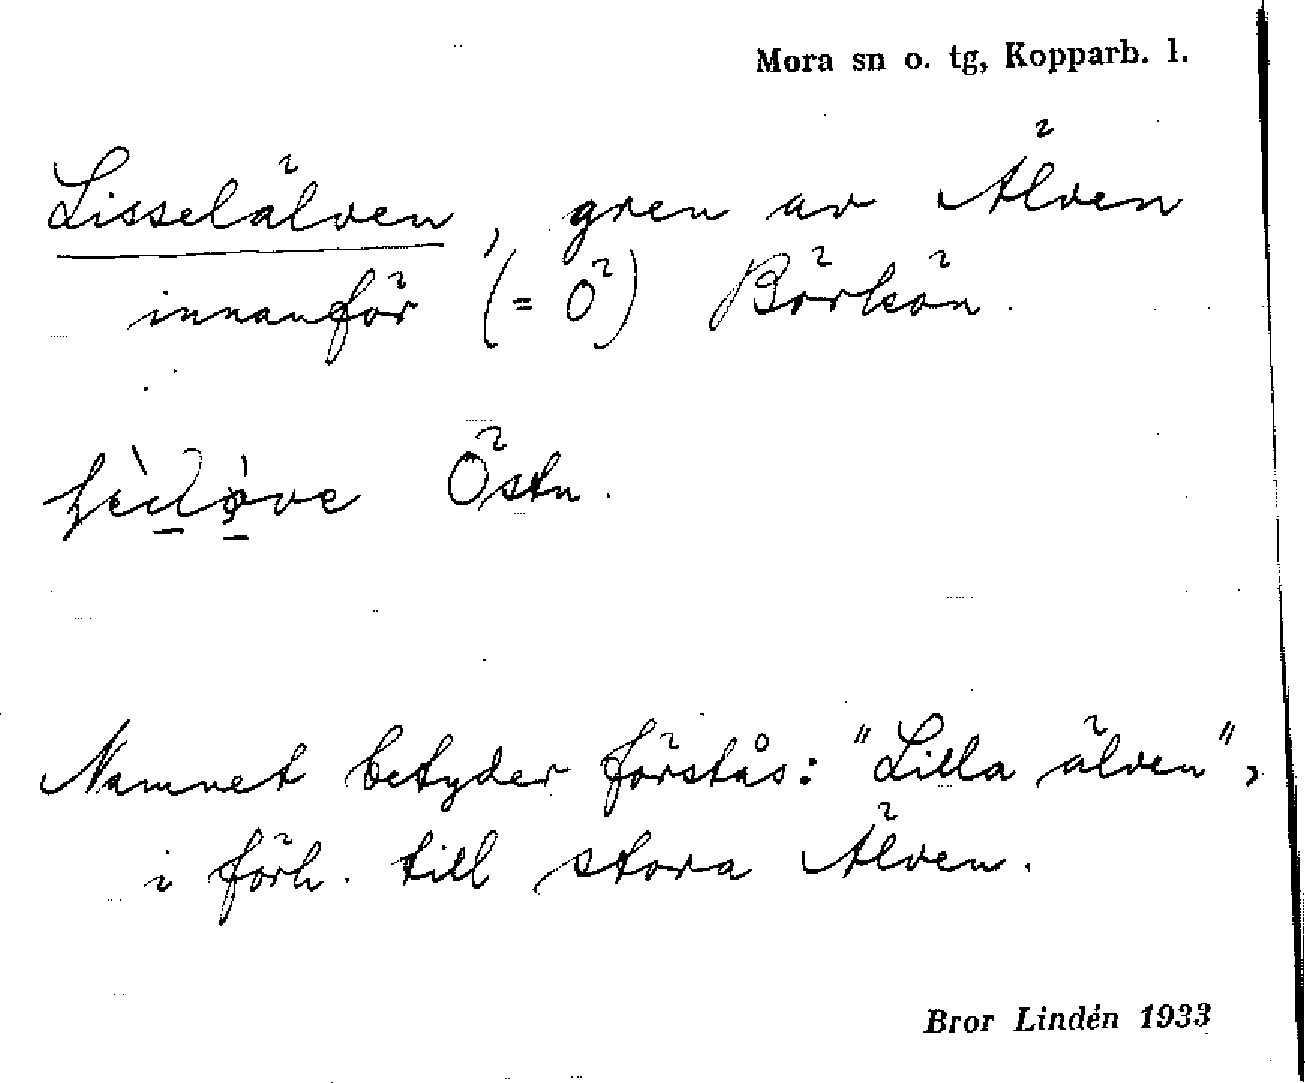 Mora sn o. tg, Kopparb. l.
Lisselälven, gren av Älven
innanför (= Ö) Börkön.
Östn.
Namnet betyder förstås: "Lilla älven",
i förh. till stora Älven.
Bror Lindén 1933